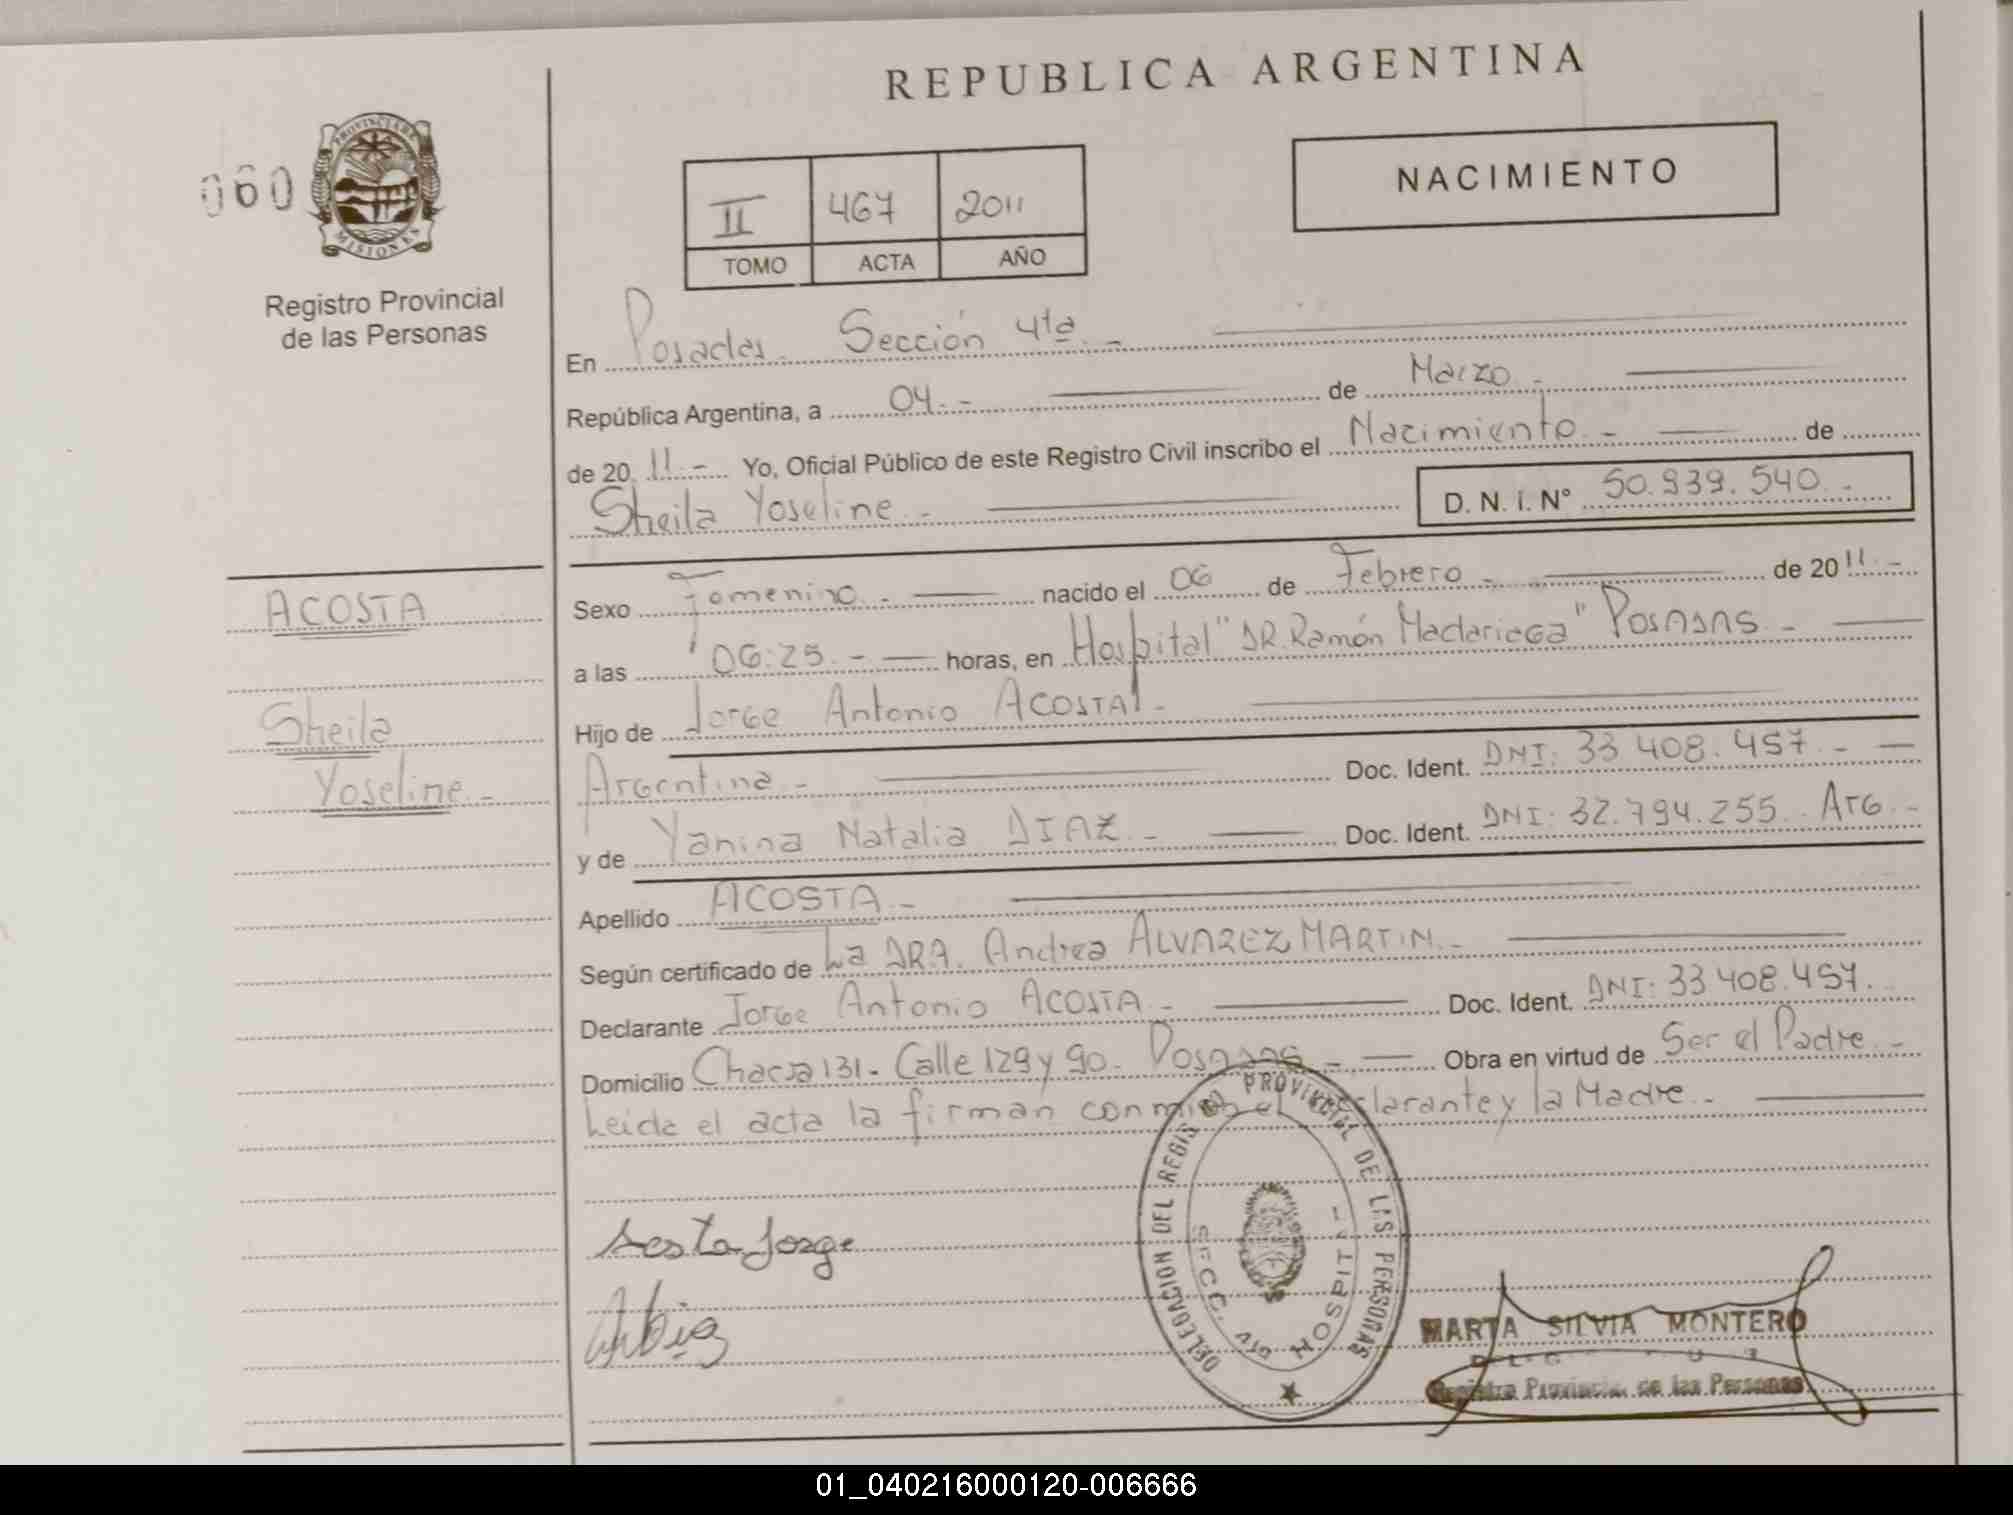 REPUBLICA ARGENTINA
060
PROVINCIA DE MISIONES
Registro Provincial
de las Personas
II 467 2011
TOMO ACTA AÑO
NACIMIENTO
En Posadas. Sección 4ta. -
República Argentina, a 04. - de Marzo. -
de 20 11. - Yo, Oficial Público de este Registro Civil inscribo el Nacimiento. - de
Sheila Yoseline. - D. N. I. N° 50.939.540. -
ACOSTA
Sheila
Yoseline. -
Sexo Femenino. - nacido el 06 de Febrero. - de 20 11. -
a las 06:25. - horas, en Hospital "DR. Ramón Madariaga" POSADAS. -
Hijo de Jorge Antonio ACOSTA. -
Argentina. - Doc. Ident. DNI: 33.408.457. -
y de Yanina Natalia DIAZ. - Doc. Ident. DNI: 32.794.255. Arg. -
Apellido ACOSTA. -
Según certificado de La DRA. Andrea ALVAREZ MARTIN. -
Declarante Jorge Antonio ACOSTA. - Doc. Ident. DNI: 33.408.457.
Domicilio Chacra 131. Calle 129 y 90. Posadas. - Obra en virtud de Ser el Padre. -
Leida el acta la firman conmigo el declarante y la Madre. -
Acosta Jorge
DELEGACION DEL REGISTRO PROVINCIAL DE LAS PERSONAS
SECC. 4ta HOSPITAL
MARTA SILVIA MONTERO
Registro Provincial de las Personas
01_040216000120-006666